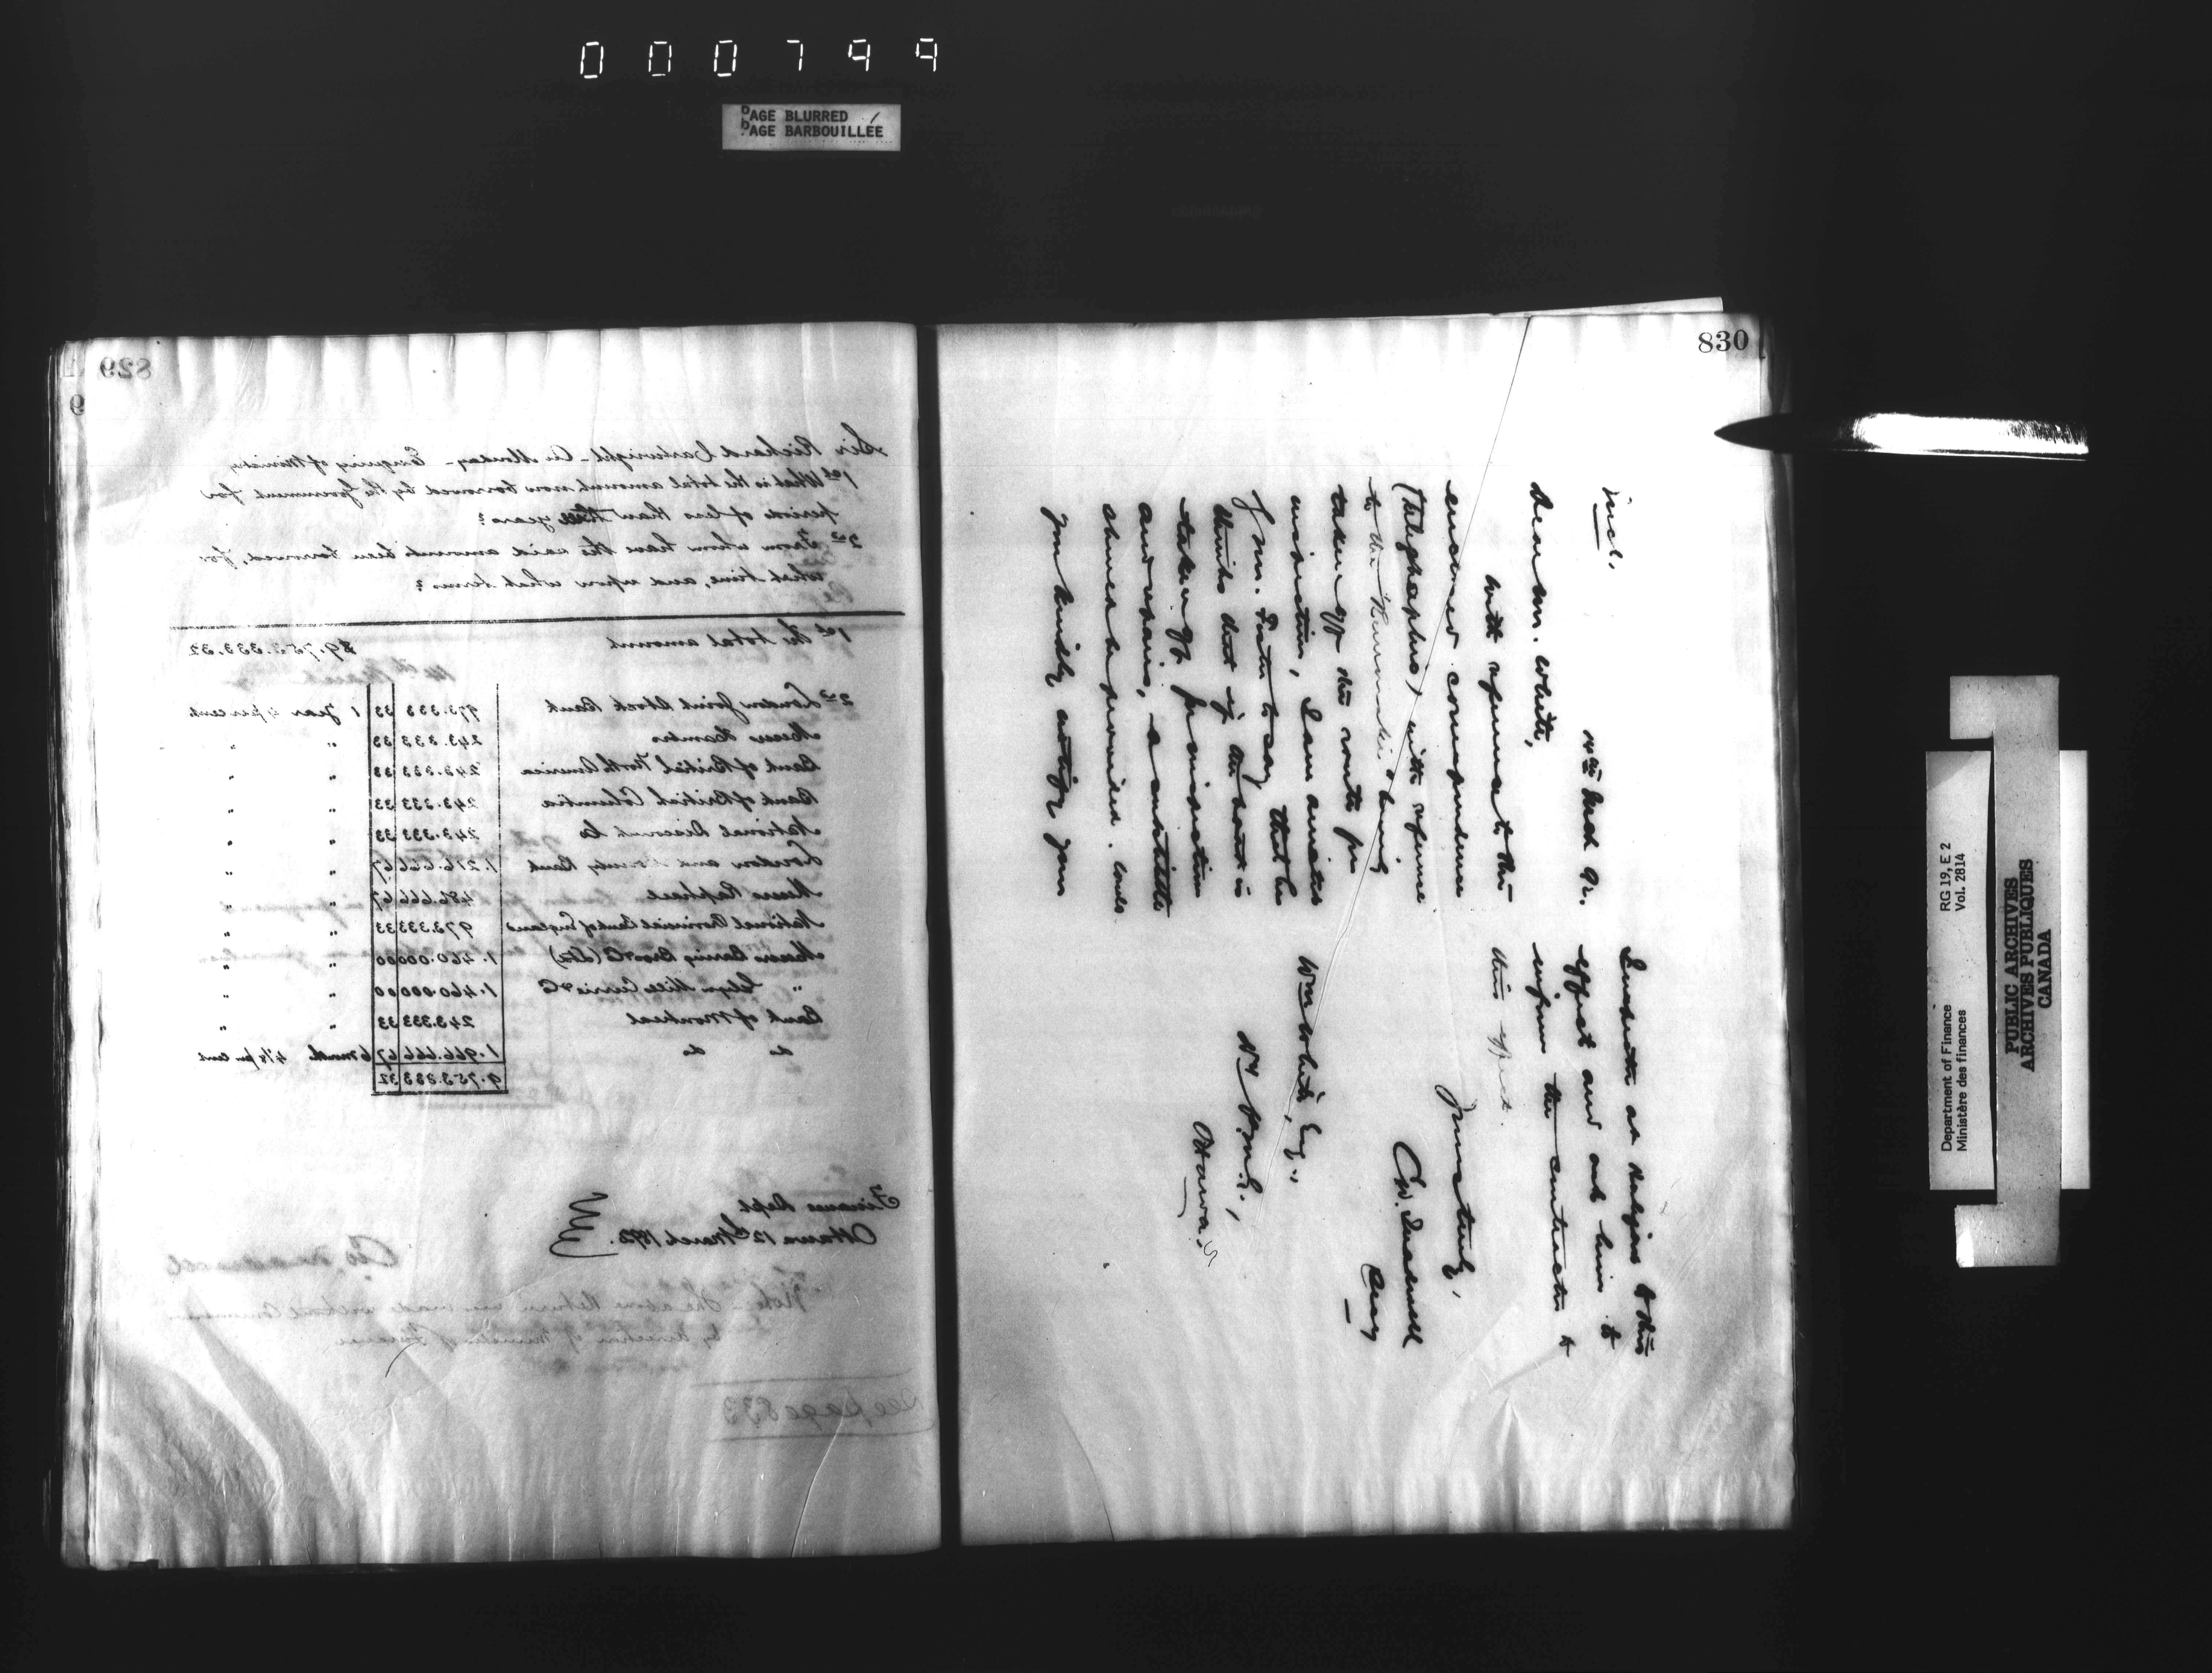 000799
PAGE BLURRED
PAGE BARBOUILLÉE
829
Sir Richard Cartwright - On Monday - Enquiry of Ministry
1st What is the total amount now borrowed by the Government for
periods of less than three years?
2nd From whom have the said amounts been borrowed, for
what time, and upon what terms?
1st The total amount $9.753.333.32
2nd London Joint Stock Bank 973.333 33 1 year 4 per cent
Messrs Hambro 243.333 33 " "
Bank of British North America 243.333 33 " "
Bank of British Columbia 243.333 33 " "
National Discount Co 243.333 33 " "
London and County Bank 1.216.666 67 " "
Messrs Raphael 486.666 67 " "
National Provincial Bank of England 973.333 33 " "
Messrs Baring Bros & Co (Ltd) 1.460.000 00 " "
" Glyn Mills Currie & Co 1.460.000 00 " "
Bank of Montreal 243.333 33 " "
do do 1.966.666 67 6 months 4 1/8 per cent
9.753.333 32
Finance Dept
Ottawa 12th March 1892.
Note - The above Return was made without
by direction of Minister of Finance
see page 833
830
incl.
14th March 92.
Dear Mr. White,
With reference to the
enclosed correspondence
(telegraphs) with reference
to the "Newfield" being
taken off the route for
inspection, I am directed
Mr. Foster to say that he
thinks that if the boat is
taken off for inspection
and repairs, a substitute
should be provided. Could
you kindly ask your
Inspector at Halifax to this
effect and ask him to
inform the contractor to
this effect.
Yours truly,
Wm White, Esq.,
Ottawa.
Department of Finance
Ministère des finances
RG 19, E 2
Vol. 2814
PUBLIC ARCHIVES
ARCHIVES PUBLIQUES
CANADA